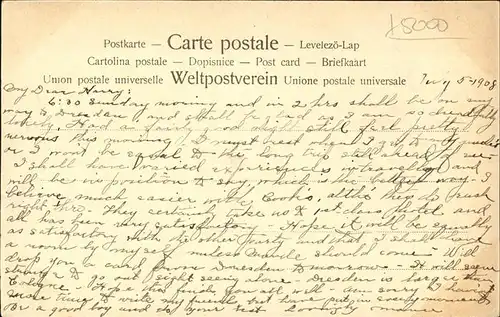 L8000
Postkarte — Carte postale — Levelezö-Lap
Cartolina postale — Dopisnice — Post card — Briefkaart
Union postale universelle Weltpostverein Unione postale universale
July 5-1908
My Dear Harry:
6:30 Sunday morning and in 2 hrs shall be on my
way to Dresden, and shall be glad as I am so
Had a fairly good night still feel pretty
nervous this morning. I must rest when I go to
or I won't be equal to the long trip still ahead of me.
I shall have varied experiences traveling and
will be in position to say, which is the better way. I
believe much easier with Cooks, altho they do rush
right thro. They certainly take us to 1st class hotel and
all has been very satisfactory — Hope it will be equally
as satisfactory with the other party and that I shall have
a room by myself unless Maude should come. Will
drop you a card from Dresden tomorrow. It will seem
strange to go out sight seeing alone — Dresden is larger than
Cologne — Hope this finds you all well — Am sorry I haven't
more time to write my friends but have put in every moment
Be a good boy and do your best Lovingly mama